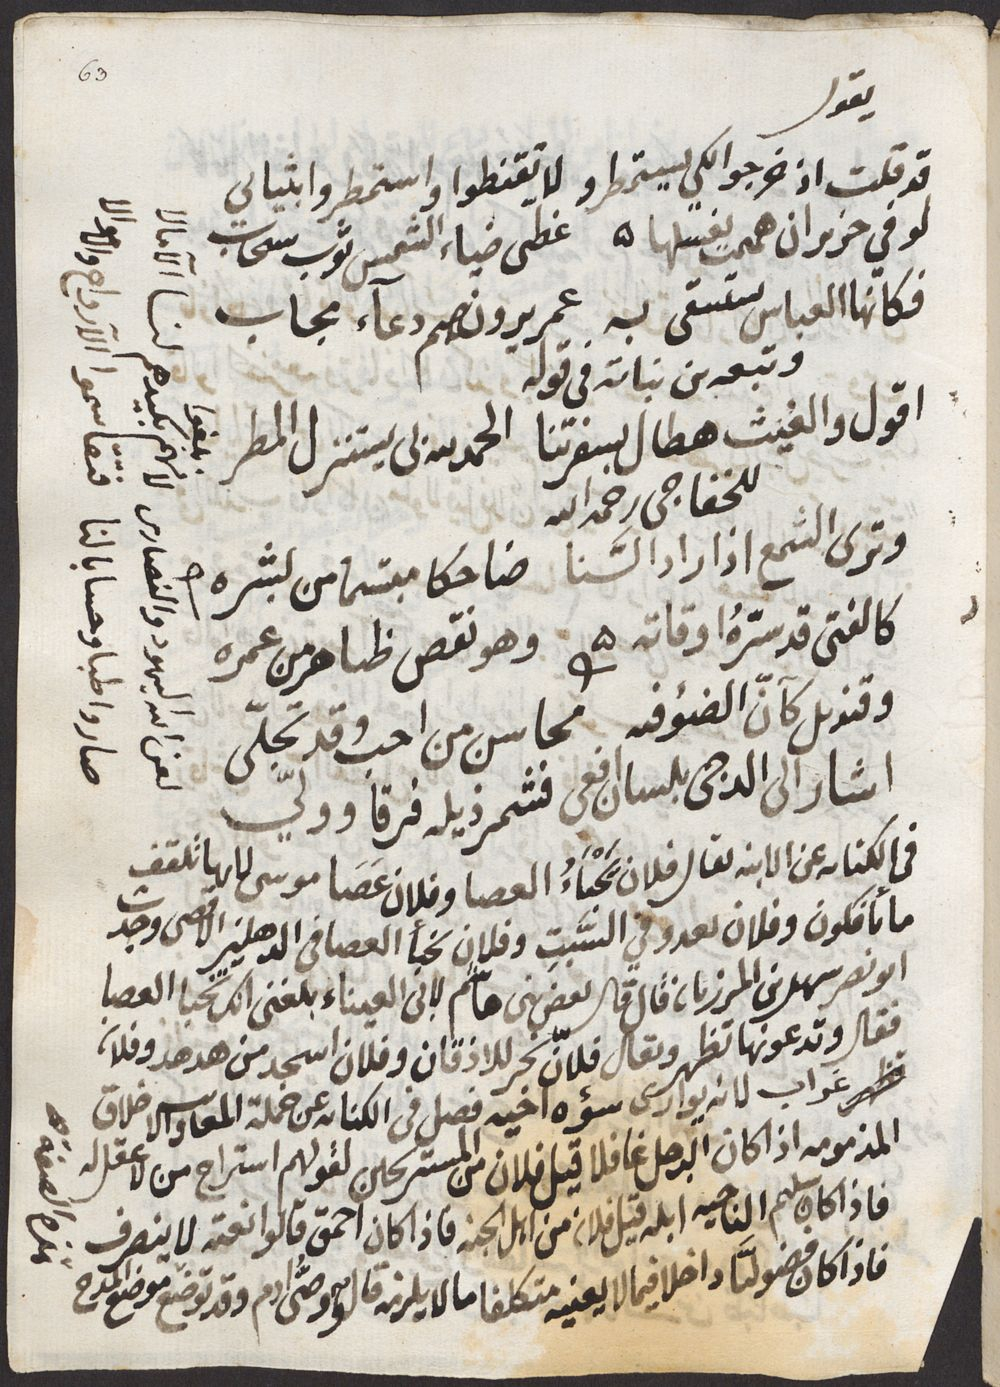 63
يقول
قد قلت اذ خرجوا لكي يستمطرو لا تقنطوا واستمطروا بثيابي
لو في حزيران هممت بغسلها ه غطى ضياء الشمس ثوب سحاب
فكانها العباس يستسقى به عمر يرون لهم دعآء مجاب
وتبعه بن نباته في قوله
اقول والغيث هطال بسفرتنا الحمد لله لى يستنزل المطر
للخفاجى رحمه الله
وترى الشمع اذا راد السّنا ضاحكا مبتسما من بشره
كالفتى قد سرّهُ اوقاته ه وهو نقص ظاهر من عمره
وقنديل كآنّ الضوء فيه محاسن من احب وقد تجلّى
اشار الى الدجى بلسان افعى فشمر ذيله فرقا وولّى
فى الكنايه عن الابنه يقال فلان يَخْبَأُ العصا وفلان عَصَا موسى لانها تلقف
ما يأفكون وفلان يعدو في السَّبتِ وفلان يخبأ العصا في الدهليز الاقصى وجدت
ابو نصر سهل بن المرزبان قال قال بعض بنى هاشم لابى العيناء بلغنى انك تخبا العصا
فقال وتدعونها تظهر ويقال فلانٌ يخر للاذقان وفلان اسجد من هدهد وفلان
غراب لانه يوارى سؤه اخيه فصل فى الكنايه عن جملة المعايب الاخلاق
المذمومه اذا كان الرجل غافلا قيل فلان من المستريحين لقولهم استراح من لا عقل له
فاذا كان سليم الناحيه ابله قيل فلان من اهل الجنه فاذا كان احمق قالوا نعته لا ينصرف
فاذا كان فضوليّا داخلا فيما لا يعنيه متكلفا ما لا يلزمه قالوا هو وصىُّ ادم وقد توضع موضع المدح
لعن الله اليهود والنصارى لانهم بلغوا بكيدهم لنا الآمالا
صاروا طبا وحسابا لنا فتقاسموا الآرواح والاموالا